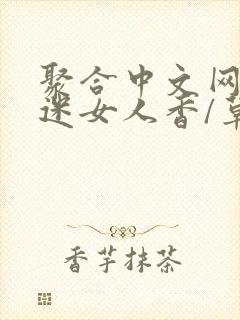 聚合中文网
迷女人香/草
香芋抹茶